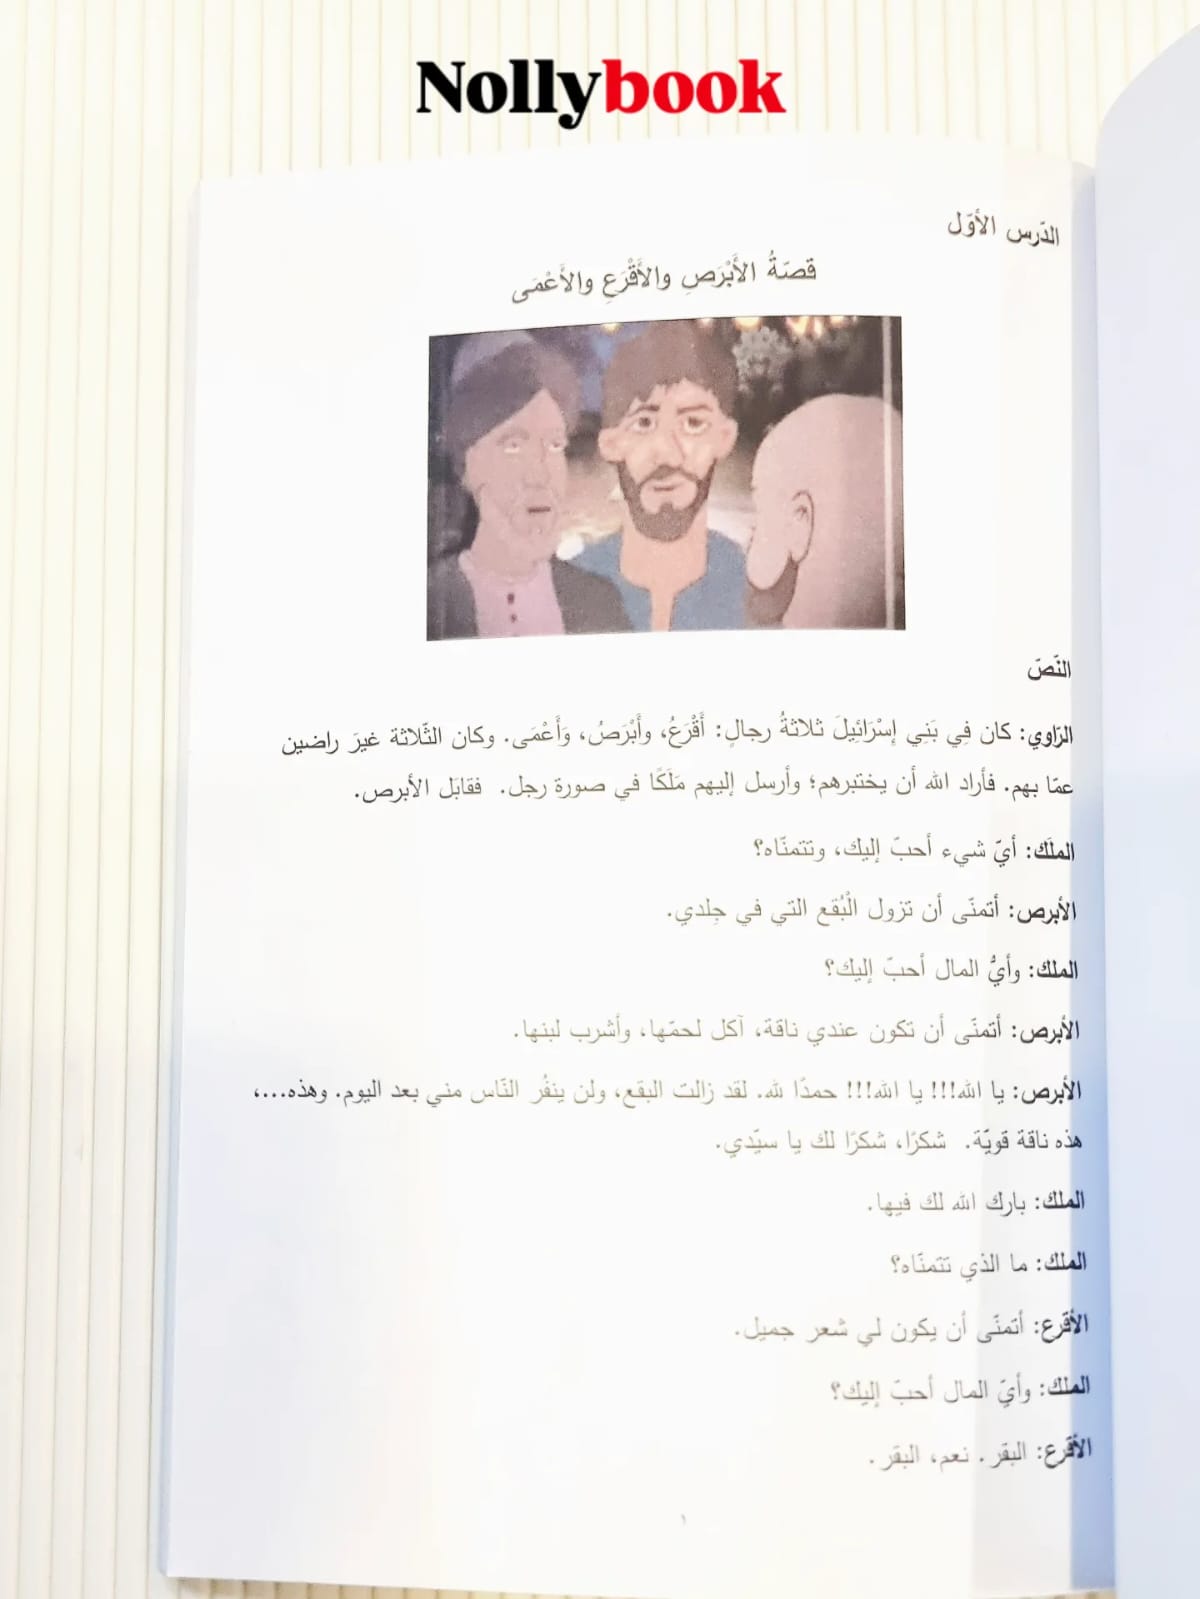 Nollybook
الدّرس الأوّل
قصّةُ الأَبْرَصِ والأَقْرَعِ والأَعْمَى
النّصّ
الرّاوي: كان فِي بَنِي إِسْرَائِيلَ ثلاثةُ رجالٍ: أَقْرَعُ، وأَبْرَصُ، وَأَعْمَى. وكان الثّلاثة غيرَ راضين
عمّا بهم. فأراد الله أن يختبرهم؛ وأرسل إليهم مَلَكًا في صورة رجل. فقابَل الأبرص.
الملَك: أيّ شيء أحبّ إليك، وتتمنّاه؟
الأبرص: أتمنّى أن تزول الْبُقع التي في جِلدي.
الملك: وأيُّ المال أحبّ إليك؟
الأبرص: أتمنّى أن تكون عندي ناقة، آكل لحمّها، وأشرب لبنها.
الأبرص: يا الله!!! يا الله!!! حمدًا لله. لقد زالت البقع، ولن ينفُر النّاس مني بعد اليوم. وهذه...،
هذه ناقة قويّة. شكرًا، شكرًا لك يا سيّدي.
الملك: بارك الله لك فيها.
الملك: ما الذي تتمنّاه؟
الأقرع: أتمنّى أن يكون لي شعر جميل.
الملك: وأيّ المال أحبّ إليك؟
الأقرع: البقر. نعم، البقر.
١